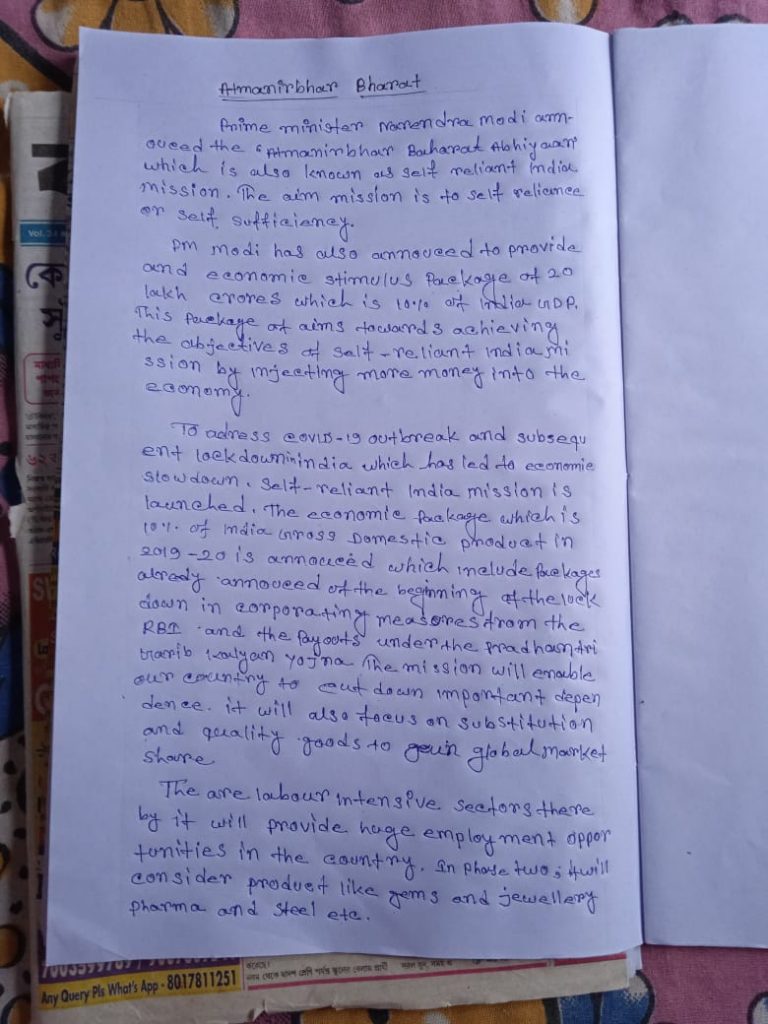 Atmanirbhar Bharat
Prime minister Narendra Modi ann-
oveed the "Atmanirbhar Baharat Abhiyaan"
which is also known as self reliant India
mission. The aim mission is to self relience
or self sufficiency.
PM Modi has also annoveed to provide
and economic stimulus Package of 20
lakh crores which is 10% of India GDP.
This Package of aims towards achieving
the objectives of self-reliant India mi
ssion by injecting more money into the
economy.
To adress covid-19 outbreak and subsequ
ent lockdown in india which has led to economic
slowdown. Self-reliant India mission is
launched. The economic Package which is
10% of India Gross Domestic product in
2019-20 is annouced which include Packages
alredy annoveed of the beginning of the lock
down in corporating measores from the
RBI and the Payouts under the pradhantri
Garib Kalyan Yojna The mission will enable
our country to cut down important depen
dence. it will also focus on substitution
and quality goods to gain global market
share
The are labour intensive sectors there
by it will provide huge employment oppor
tunities in the country. In phase two, it will
consider product like gems and jewellery
pharma and steel etc.
কে
সু
Any Query Pls What's App - 8017811251